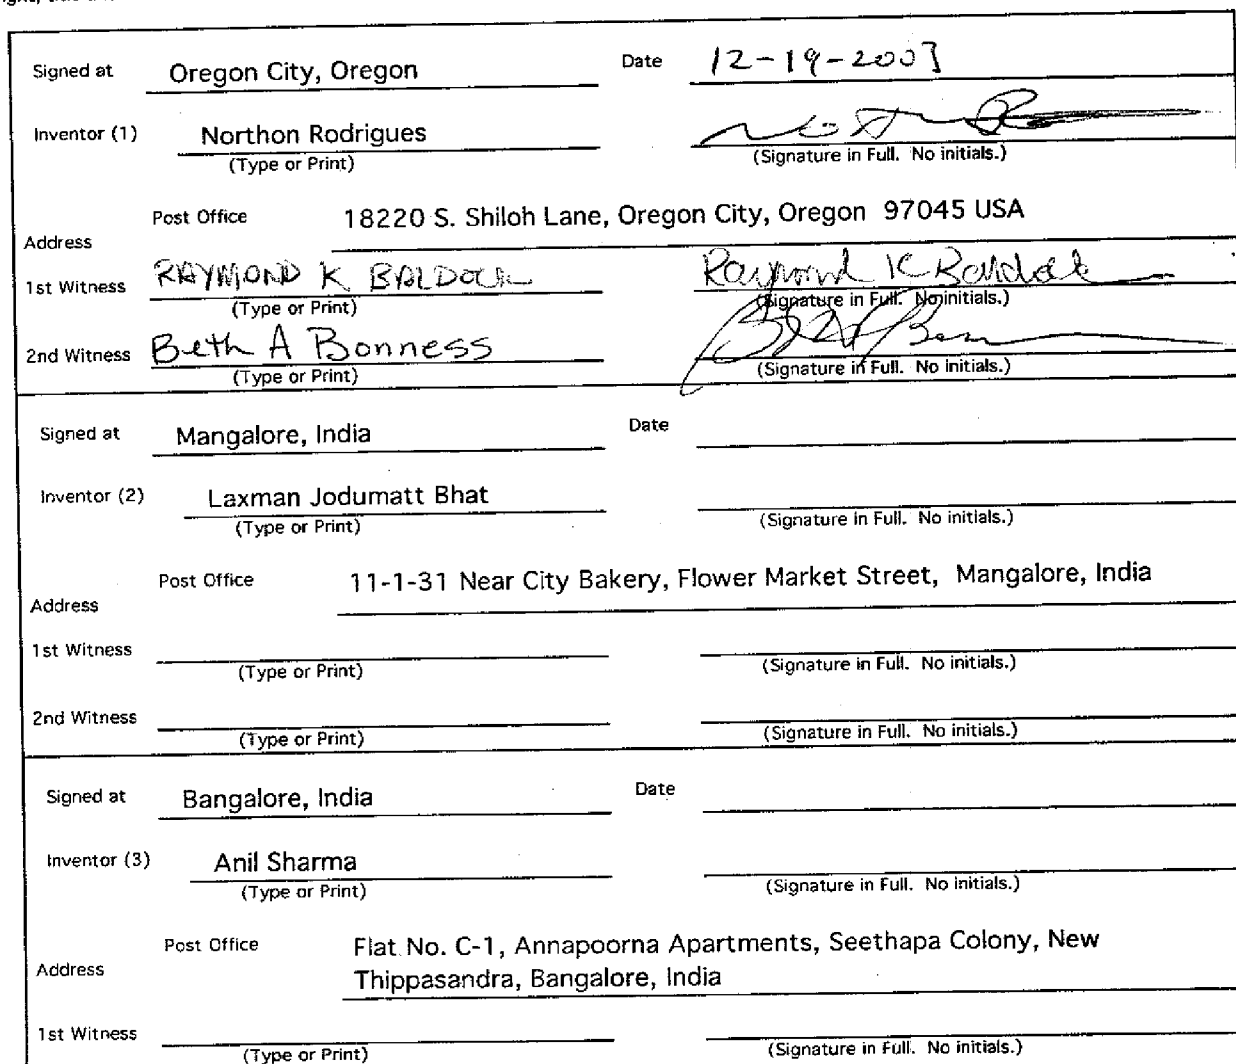 Signed at Oregon City, Oregon Date 12-19-2003
Inventor (1) Northon Rodrigues
(Type or Print) (Signature in Full. No initials.)
Post Office 18220 S. Shiloh Lane, Oregon City, Oregon 97045 USA
Address
1st Witness RAYMOND K BALDOCK Raymond K Baldock
(Type or Print) (Signature in Full. No initials.)
2nd Witness Beth A Bonness
(Type or Print) (Signature in Full. No initials.)
Signed at Mangalore, India Date
Inventor (2) Laxman Jodumatt Bhat
(Type or Print) (Signature in Full. No initials.)
Post Office 11-1-31 Near City Bakery, Flower Market Street, Mangalore, India
Address
1st Witness
(Type or Print) (Signature in Full. No initials.)
2nd Witness
(Type or Print) (Signature in Full. No initials.)
Signed at Bangalore, India Date
Inventor (3) Anil Sharma
(Type or Print) (Signature in Full. No initials.)
Post Office Flat No. C-1, Annapoorna Apartments, Seethapa Colony, New
Address Thippasandra, Bangalore, India
1st Witness
(Type or Print) (Signature in Full. No initials.)